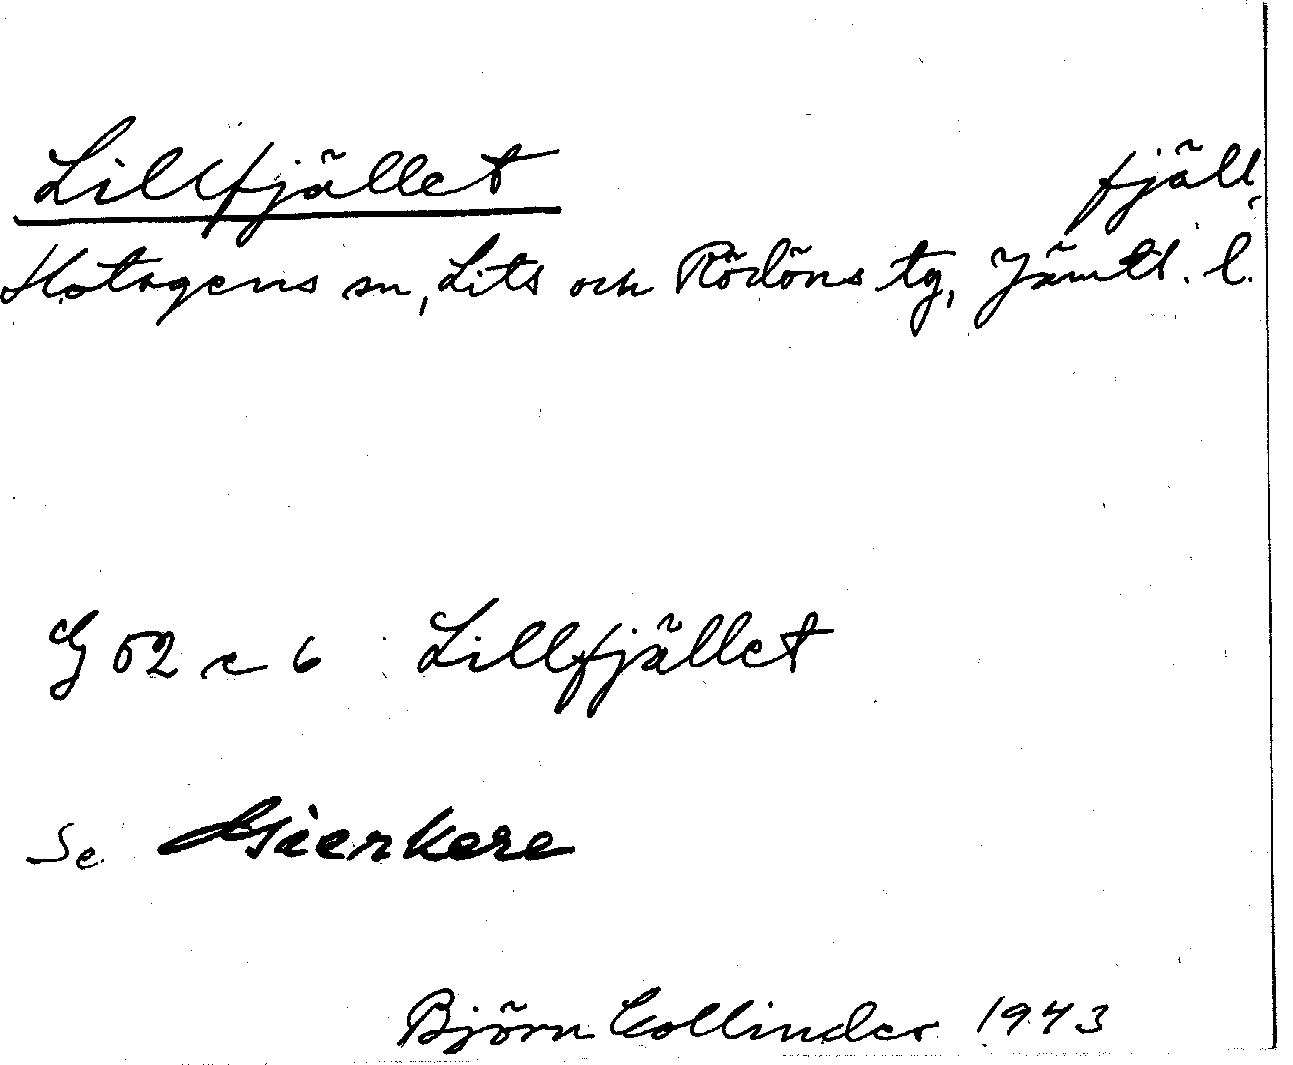 Lillfjället fjäll
Hotagens sn, Lits och Rödöns tg, Jämtl. l.
G 52 c 6 Lillfjället
Se
Björn Collinder 1943